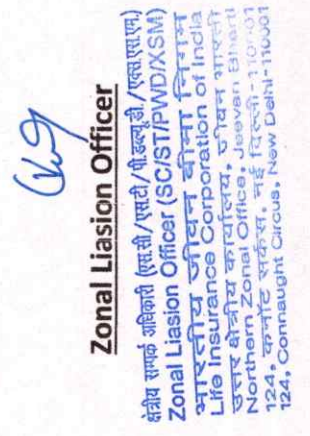 Zonal Liasion Officer
क्षेत्रीय सम्पर्क अधिकारी (एस.सी/एसटी/पी.डब्ल्यू.डी./एक्स.एस.एम.)
Zonal Liasion Officer (SC/ST/PWD/XSM)
भारतीय जीवन बीमा निगम
Life Insurance Corporation of India
उत्तर क्षेत्रीय कार्यालय, जीवन भारती
Northern Zonal Office, Jeevan Bharti
124, कनॉट सर्कस, नई दिल्ली-110001
124, Connaught Circus, New Delhi-110001